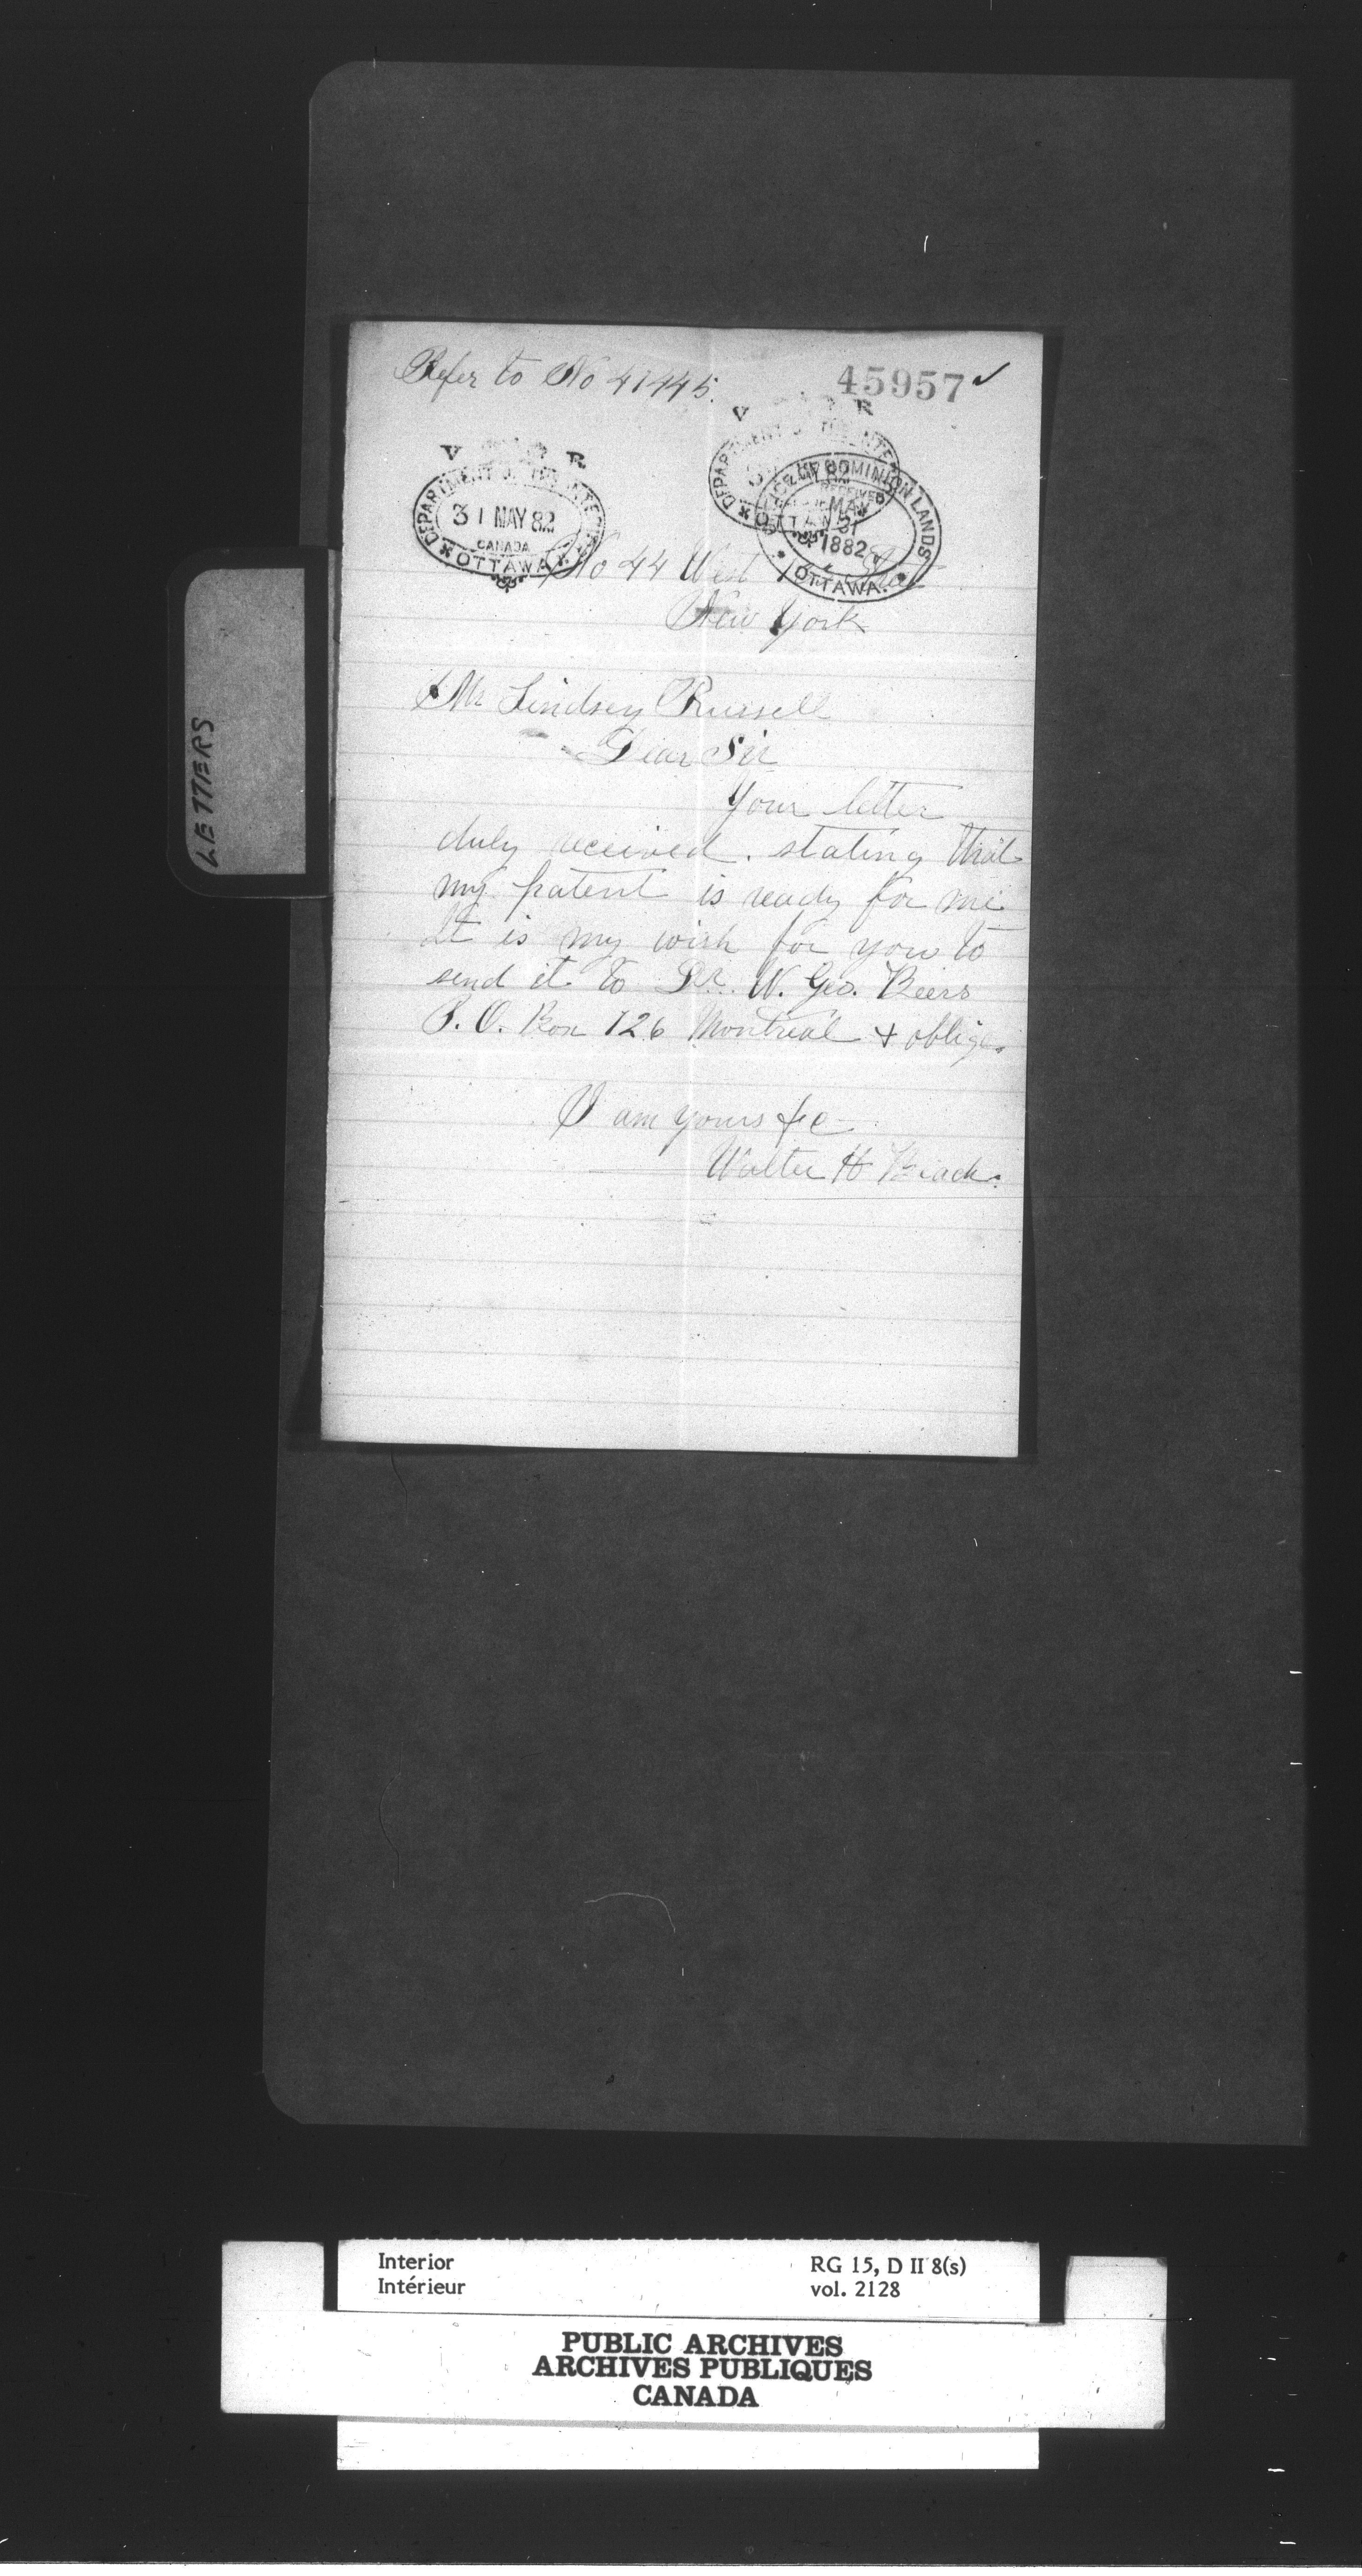 Refer to No 41445.
45957
V R
DEPARTMENT OF THE INTERIOR
31 MAY 82
CANADA
OTTAWA
V R
DEPARTMENT OF THE INTE
OTTAWA
OFFICE OF DOMINION LANDS
RECEIVED
MAY
31
1882
OTTAWA.
No 44 West
New York
Mr Lindsey Russell
Dear Sir
Your letter
duly received. stating that
my patent is ready for me
It is my wish for you to
send it to Dr. W. Geo. Beers
P. O. Box 126 Montreal & oblige.
I am yours &c
Walter H
LETTERS
Interior
Intérieur
RG 15, D II 8(s)
vol. 2128
PUBLIC ARCHIVES
ARCHIVES PUBLIQUES
CANADA